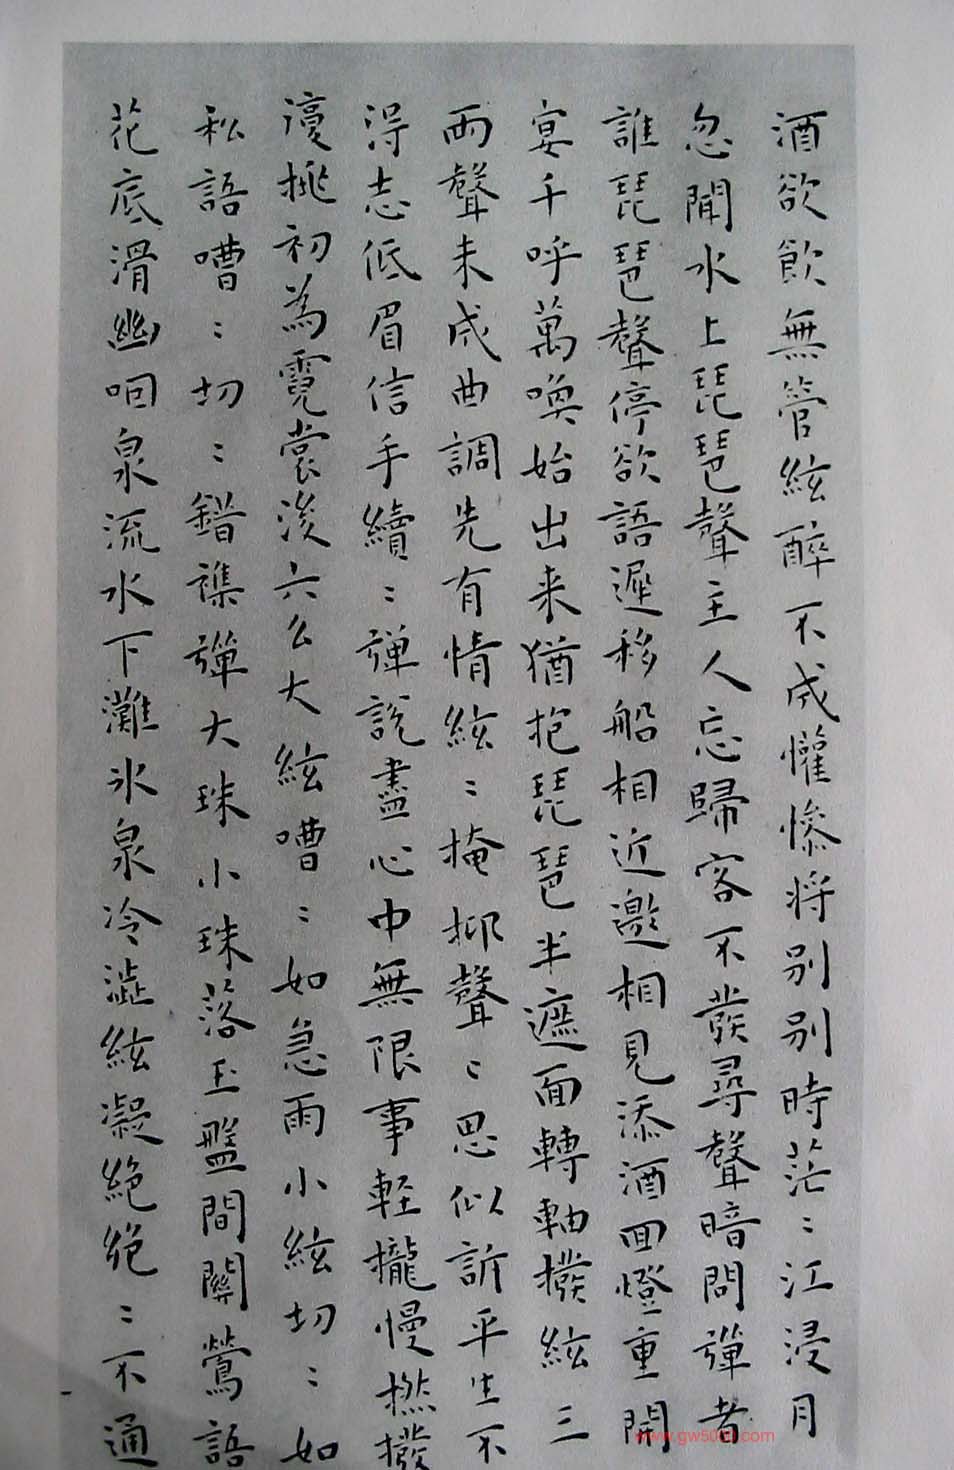 酒欲飲無管絃醉不成懽慘将别别時茫〻江浸月
忽聞水上琵琶聲主人忘歸客不發尋聲暗問彈者
誰琵琶聲停欲語遲移船相近邀相見添酒回燈重開
宴千呼萬喚始出来猶抱琵琶半遮面轉軸撥絃三
兩聲未成曲調先有情絃〻掩抑聲〻思似訴平生不
得志低眉信手續〻彈說盡心中無限事軽攏慢撚撥
復挑初為霓裳後六么大絃嘈〻如急雨小絃切〻如
私語嘈〻切〻錯襍彈大珠小珠落玉盤間關鶯語
花底滑幽咽泉流水下灘氷泉冷澁絃凝絶絶〻不通
www.gw5000.com